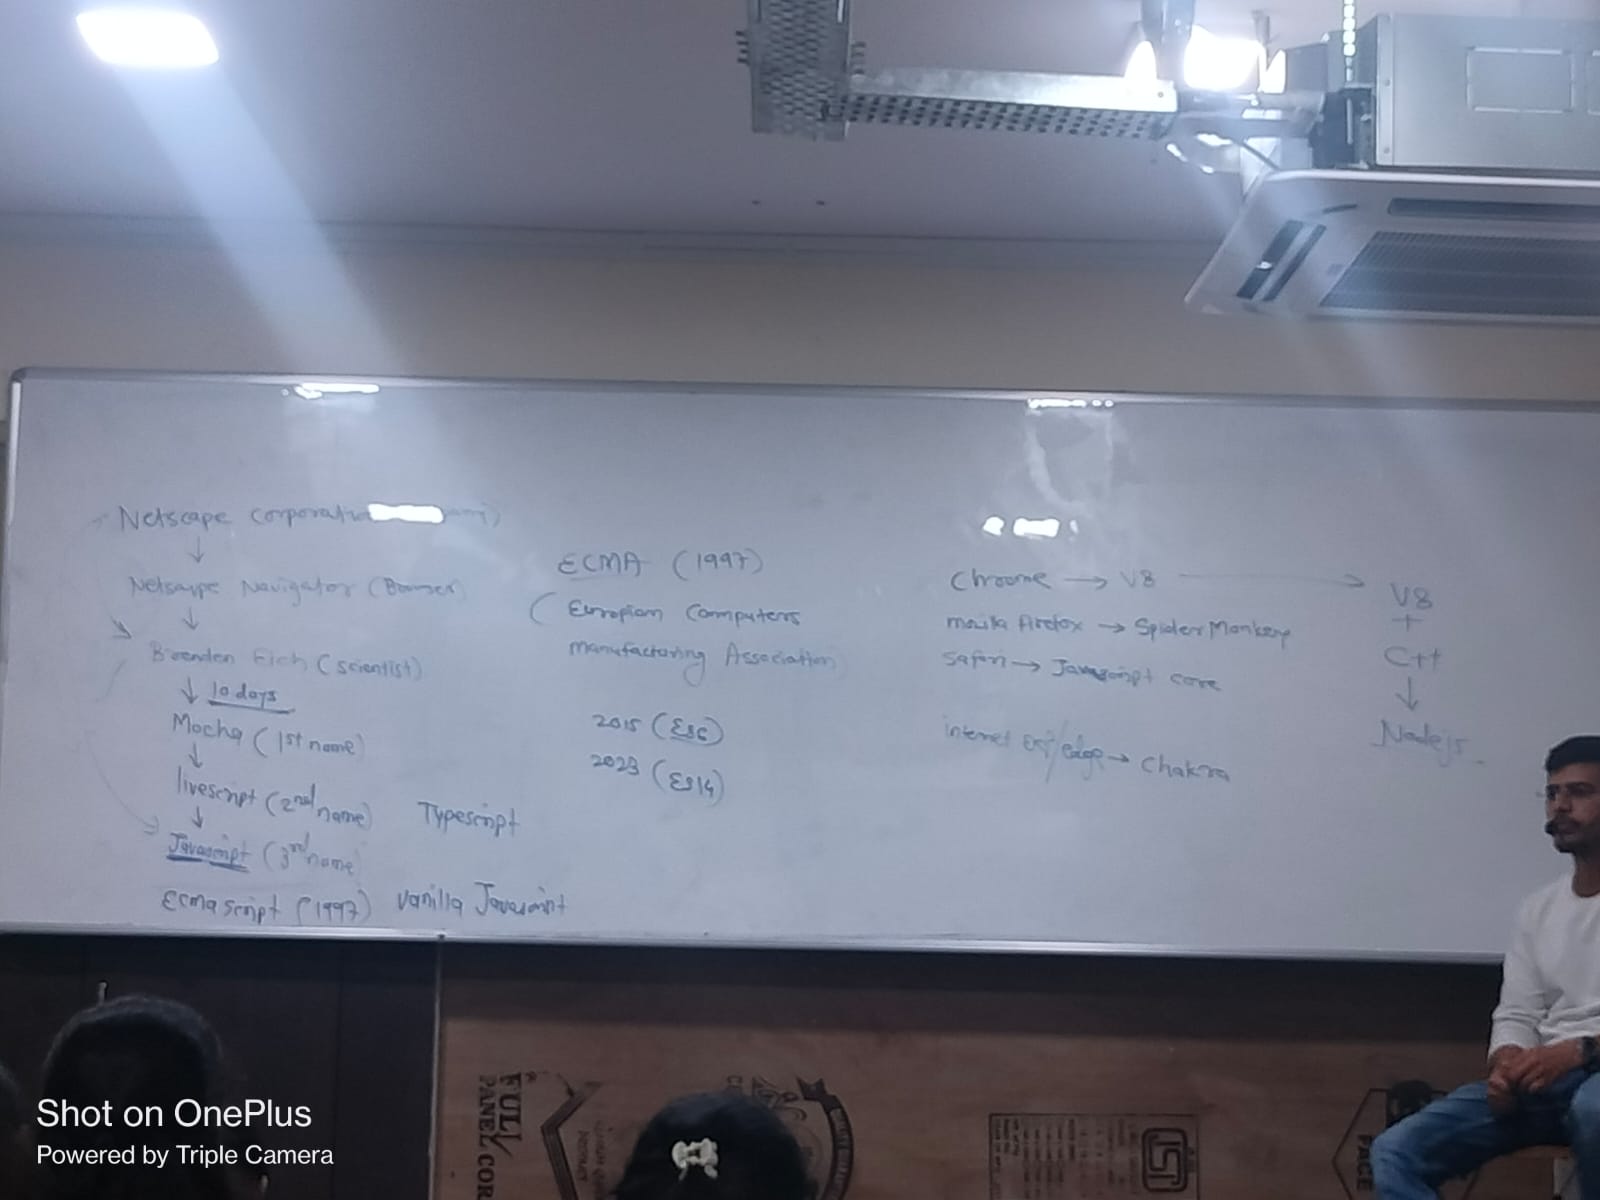 Netscape Corporation
↓
Netsacpe Navigator (Bowser)
↓
Brenden Eich (scientist)
↓ 10 days
Mocha (1st name)
↓
livescript (2nd name)
↓
Javascript (3rd name)
Ecma Script (1997)
Typescript
Vanilla Javascript
ECMA (1997)
( Europian Computers
Manufacturing Association)
2015 (ES6)
2023 (ES14)
Chrome → V8 →
mozilla firefox → Spider Monkey
Safari → Javascript core
internet exp/edge → Chakra
V8
+
C++
↓
Nodejs
FULL
PANEL
FACE
Shot on OnePlus
Powered by Triple Camera